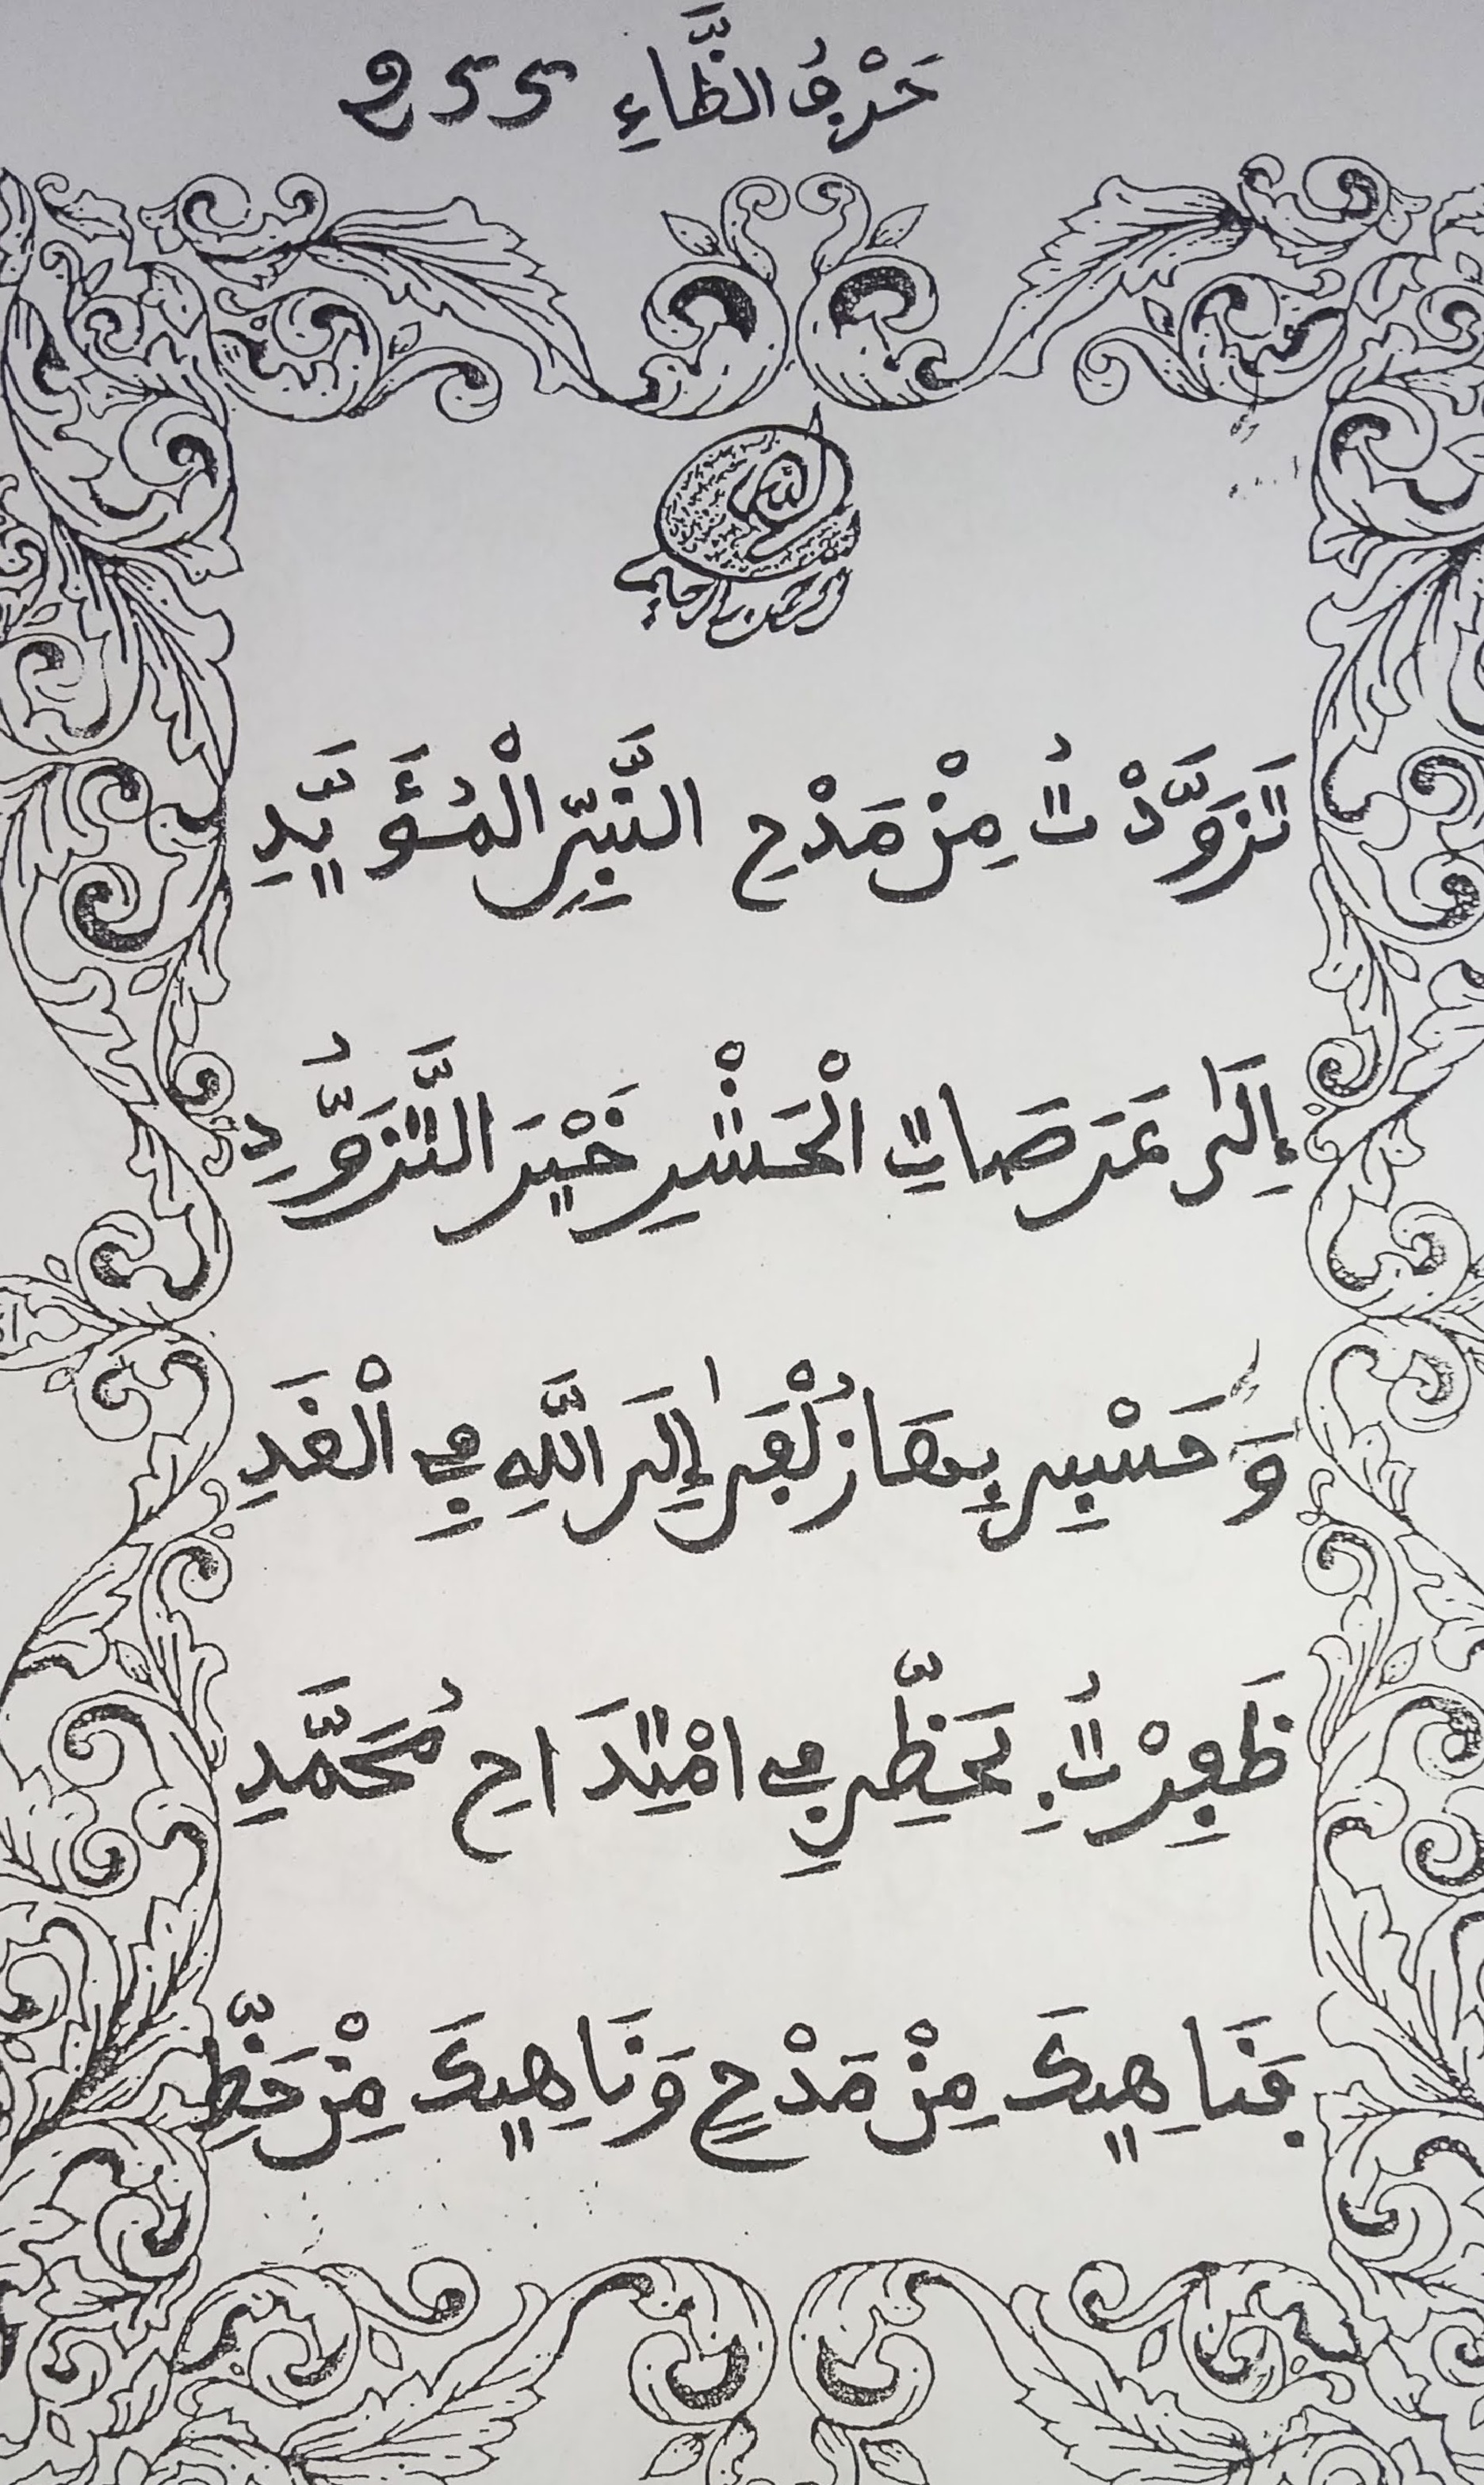 حَرْفُ الظَّاءِ 255
اللّٰه الرحمن الرحيم
تَزَوَّدْتُ مِنْ مَدْحِ النَّبِيِّ الْمُؤَيَّدِ
إِلَى عَرَصَاتِ الْحَشْرِ خَيْرَ التَّزَوُّدِ
وَحَسْبِي بِهَا زُلْفَى إِلَى اللَّهِ فِي الْغَدِ
ظَفِرْتُ بِحَظِّي فِي امْتِدَاحِ مُحَمَّدِ
فَنَاهِيكَ مِنْ مَدْحٍ وَنَاهِيكَ مِنْ حَظِّ